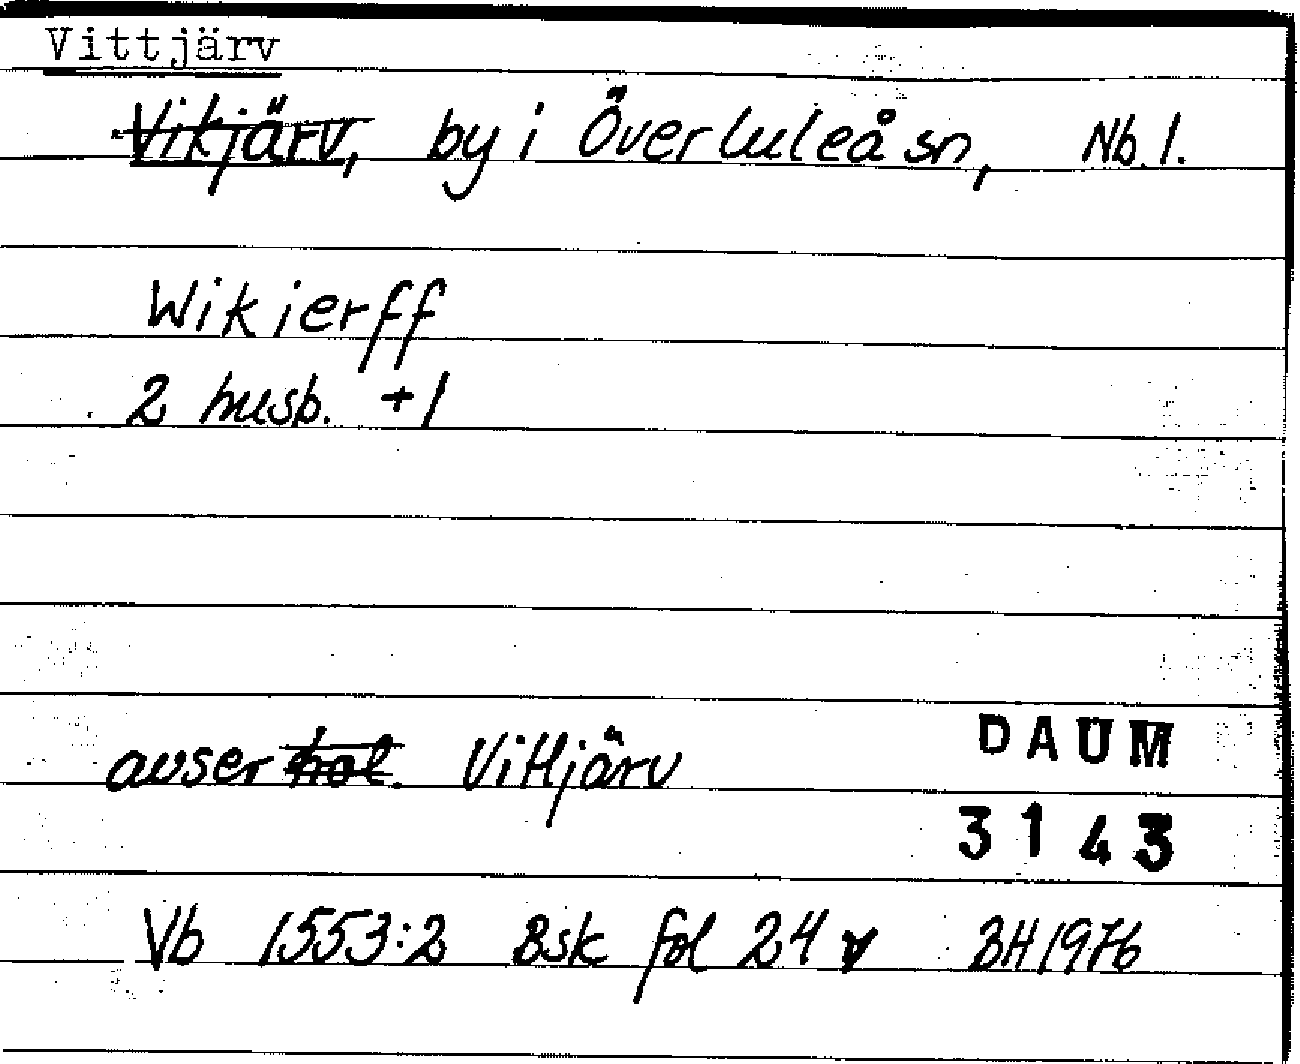 Vittjärv
Vikjärv, by i Överluleå sn, Nb. l.
Wikierff
2 husb. +1
avser hol. Vittjärv
DAUM
3143
Vb 1553:2 Bsk fol 24 v BH1976